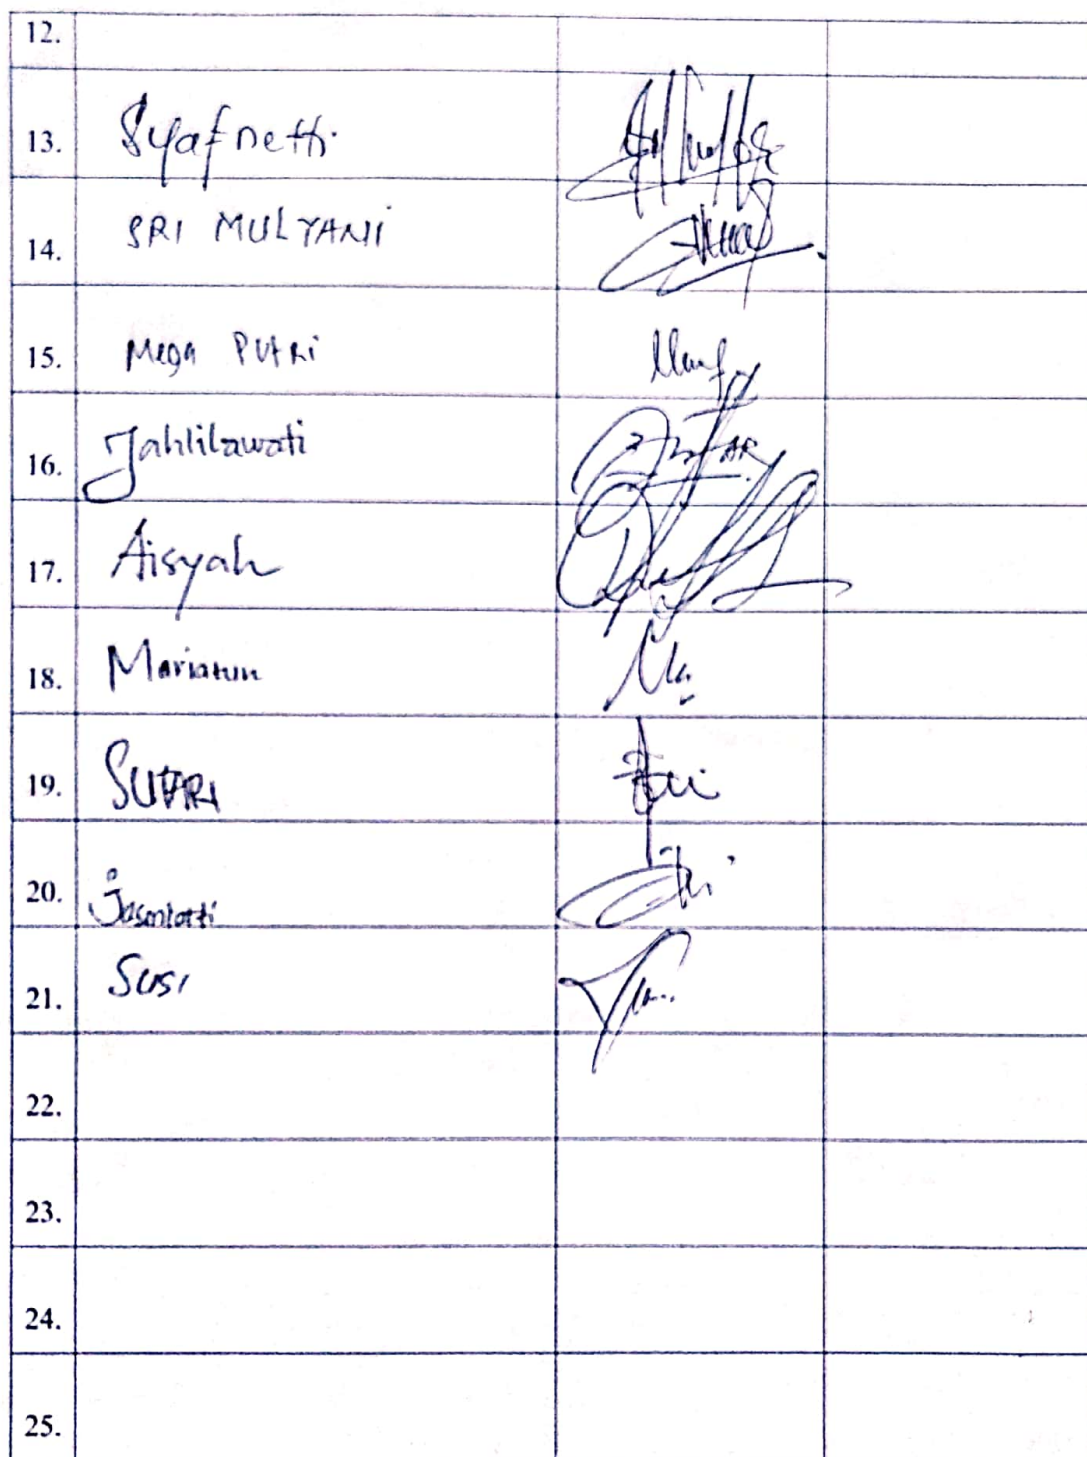 12.
13. Syafnetti
14. SRI MULYANI
15. Mega PUTRi
16. Jahlilawati
17. Aisyah
18. Mariatun
19. SUTARI
20. Jasmiatti
21. Susi
22.
23.
24.
25.